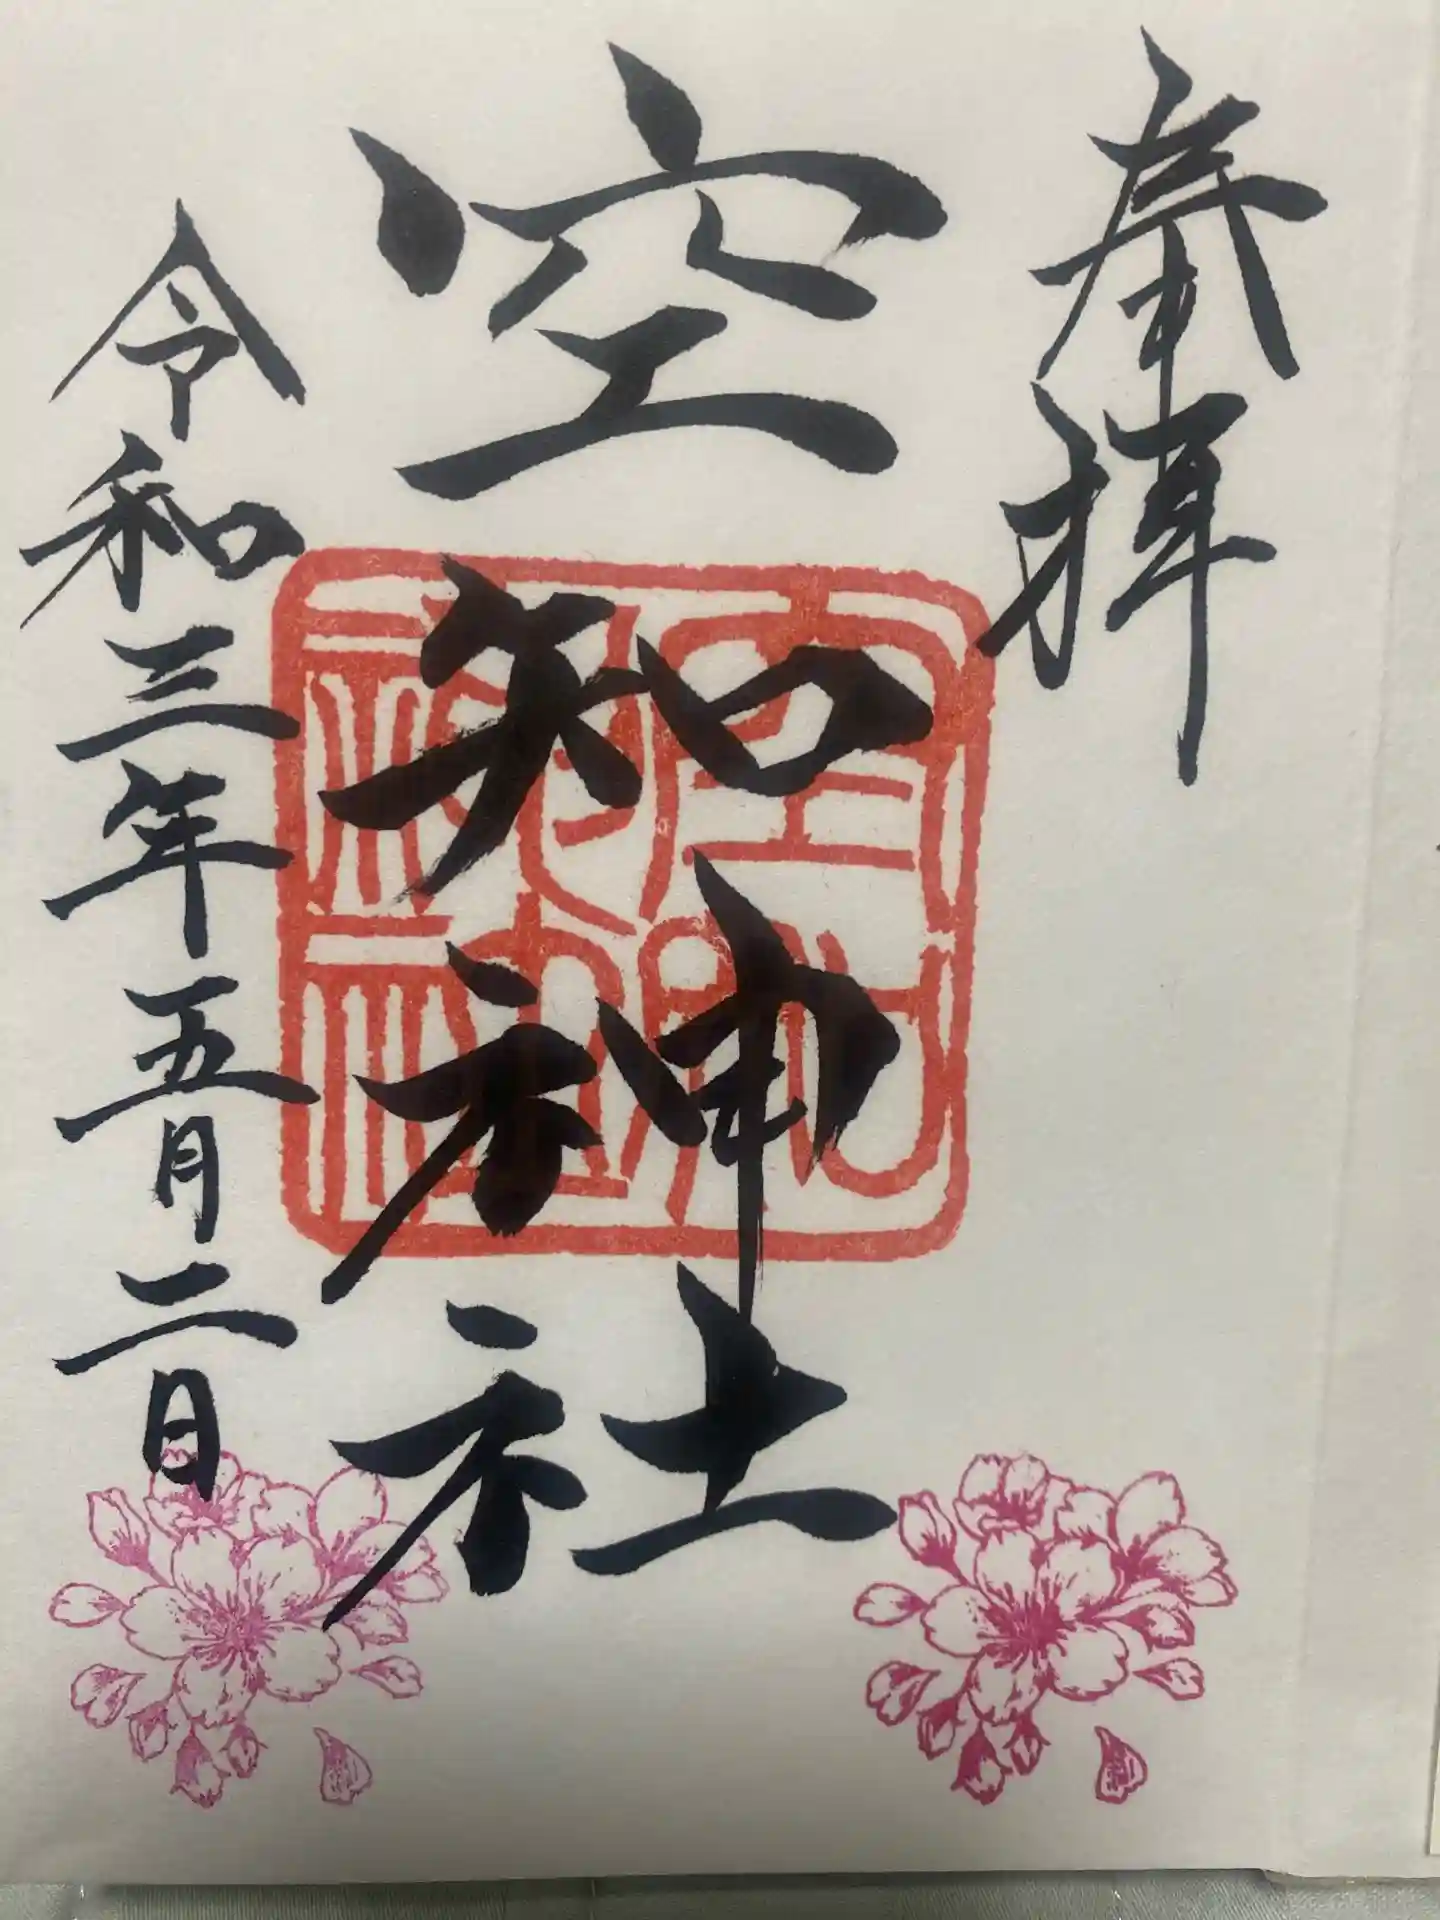 奉拝
空知神社
空知神社
令和三年五月二日